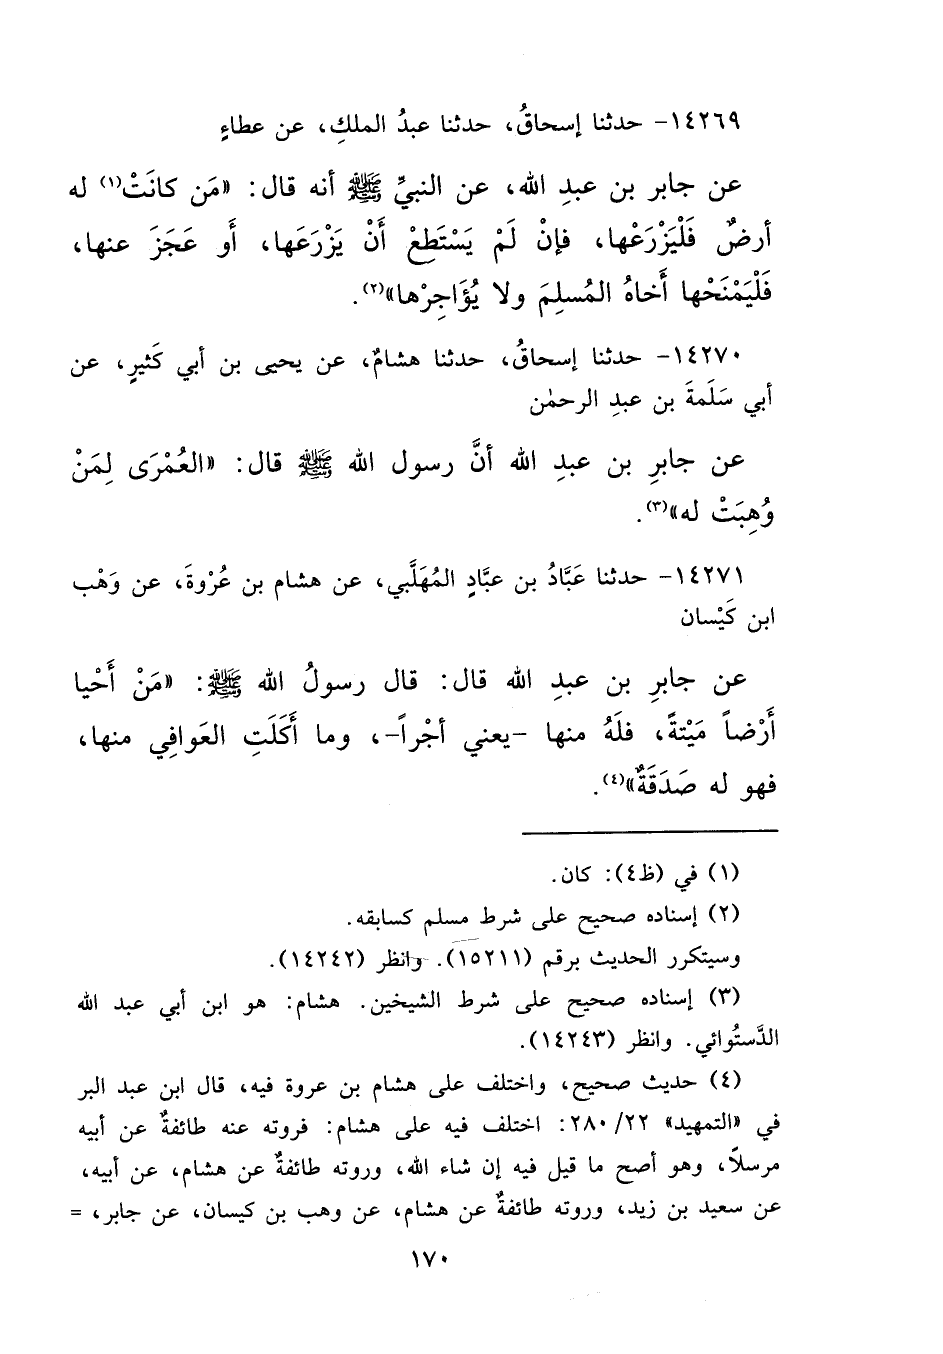 ١٤٢٦٩- حدثنا إسحاقُ، حدثنا عبدُ الملكِ، عن عطاءٍ
عن جابر بن عبدِ الله، عن النبيِّ ﷺ أنه قال: «مَن كانَتْ(١) له
أرضٌ فَلْيَزْرَعْها، فإنْ لَمْ يَسْتَطِعْ أَنْ يَزْرَعَها، أَو عَجَزَ عنها،
فَلْيَمْنَحْها أَخاهُ المُسلِمَ ولا يُؤَاجِرْها»(٢).
١٤٢٧٠- حدثنا إسحاقُ، حدثنا هشامٌ، عن يحيى بن أبي كَثيرٍ، عن
أبي سَلَمةَ بن عبدِ الرحمٰن
عن جابرِ بن عبدِ الله أنَّ رسول الله ﷺ قال: «العُمْرَى لِمَنْ
وُهِبَتْ له»(٣).
١٤٢٧١- حدثنا عَبَّادُ بن عبَّادٍ المُهَلَّبي، عن هشام بن عُرْوةَ، عن وَهْب
ابن كَيْسان
عن جابرِ بن عبدِ الله قال: قال رسولُ الله ﷺ: «مَنْ أَحْيا
أَرْضاً مَيْتةً، فلَهُ منها -يعني أجْراً-، وما أَكَلَتِ العَوافِي منها،
فهو له صَدَقَةٌ»(٤).
(١) في (ظ٤): كان.
(٢) إسناده صحيح على شرط مسلم كسابقه.
وسيتكرر الحديث برقم (١٥٢١١). وانظر (١٤٢٤٢).
(٣) إسناده صحيح على شرط الشيخين. هشام: هو ابن أبي عبد الله
الدَّستُوائي. وانظر (١٤٢٤٣).
(٤) حديث صحيح، واختلف على هشام بن عروة فيه، قال ابن عبد البر
في «التمهيد» ٢٨٠/٢٢: اختلف فيه على هشام: فروته عنه طائفةٌ عن أبيه
مرسلاً، وهو أصح ما قيل فيه إن شاء الله، وروته طائفةٌ عن هشام، عن أبيه،
عن سعيد بن زيد، وروته طائفةٌ عن هشام، عن وهب بن كيسان، عن جابر، =
١٧٠